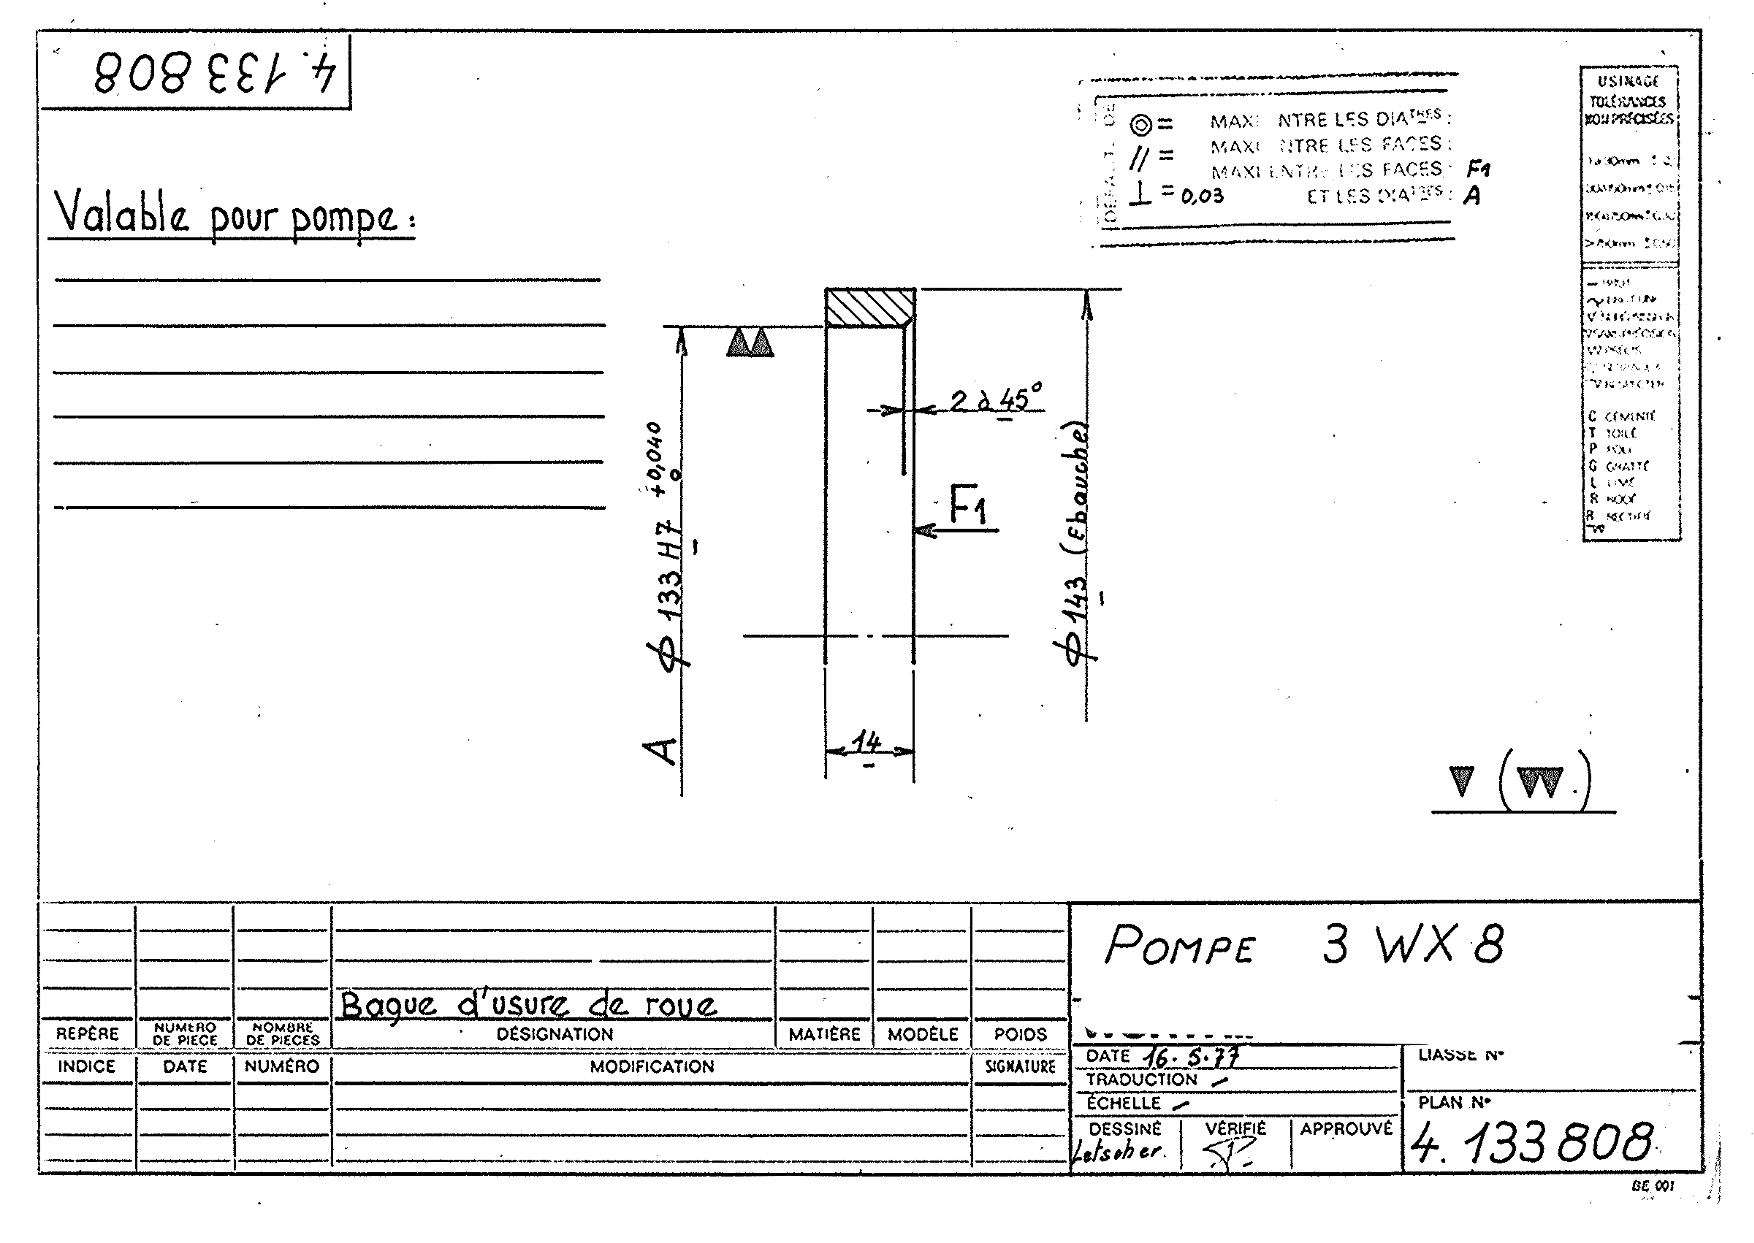 4.133808
Valable pour pompe :
◎ = MAXI ENTRE LES DIATRES :
// = MAXI ENTRE LES FACES :
MAXI ENTRE LES FACES : F1
⊥ = 0,03 ET LES DIATRES : A
USINAGE
TOLÉRANCES
NON PRÉCISÉES
C CÉMENTÉ
T TOILÉ
P POLI
G GRATTÉ
L LIMÉ
R RODÉ
R RECTIFIÉ
2 à 45°
F1
A ϕ 133 H7 +0,040 0
ϕ 143 (Ebauche)
14
POMPE 3 WX 8
Bague d'usure de roue
REPÈRE NUMÉRO DE PIECE NOMBRE DE PIECES DÉSIGNATION MATIÈRE MODÈLE POIDS
INDICE DATE NUMÉRO MODIFICATION SIGNATURE
DATE 16.5.77
TRADUCTION –
ÉCHELLE –
DESSINÉ VÉRIFIÉ APPROUVÉ
Letscher.
LIASSE N°
PLAN N°
4.133808
BE 001